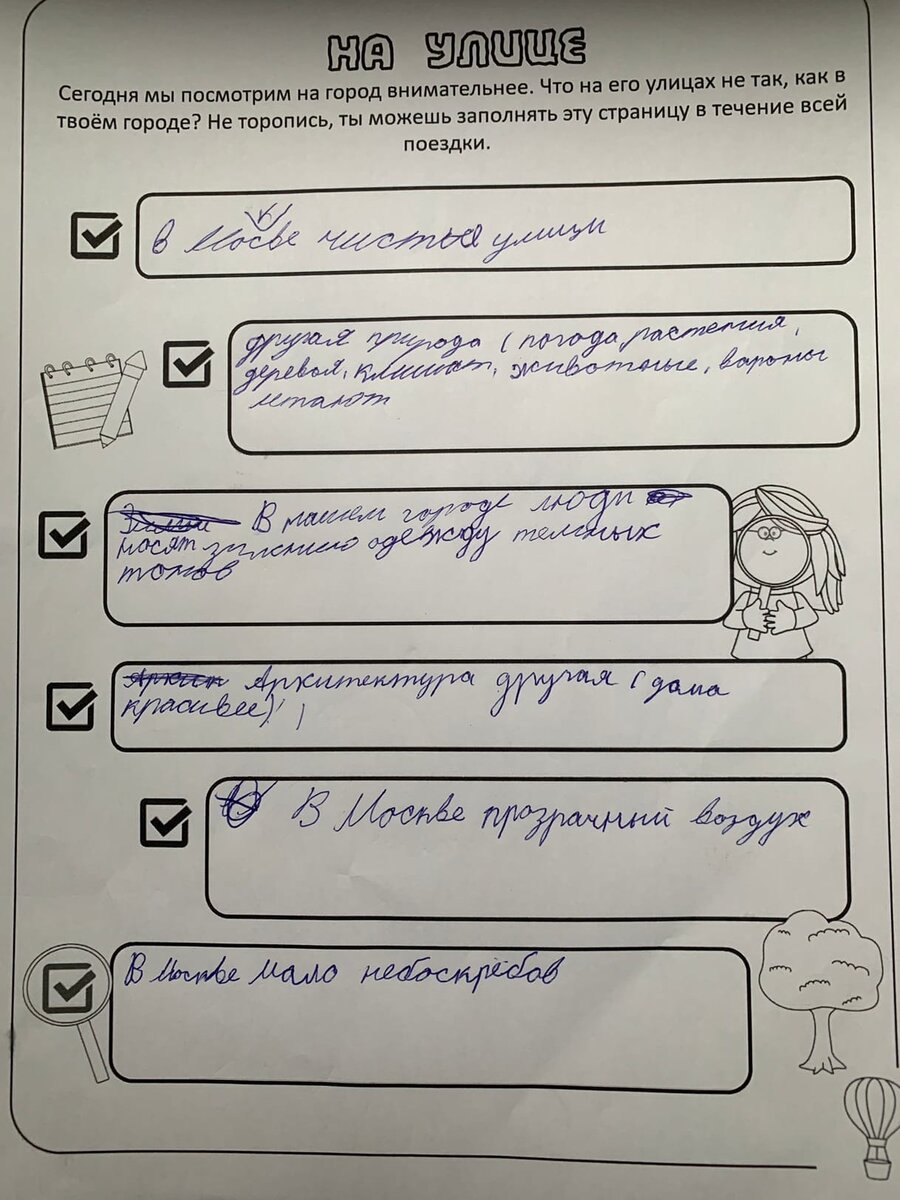 НА УЛИЦЕ
Сегодня мы посмотрим на город внимательнее. Что на его улицах не так, как в
твоём городе? Не торопись, ты можешь заполнять эту страницу в течение всей
поездки.
к
в Мосве чистые улицы
другая природа (погода, растения,
деревья, климат, животные, вароны
летают
В нашем городе люди
носят зимнюю одежду темных
тонов
Архитектура другая (дома
красивее)
В Москве прозрачный воздух
В Москве мало небоскрёбов